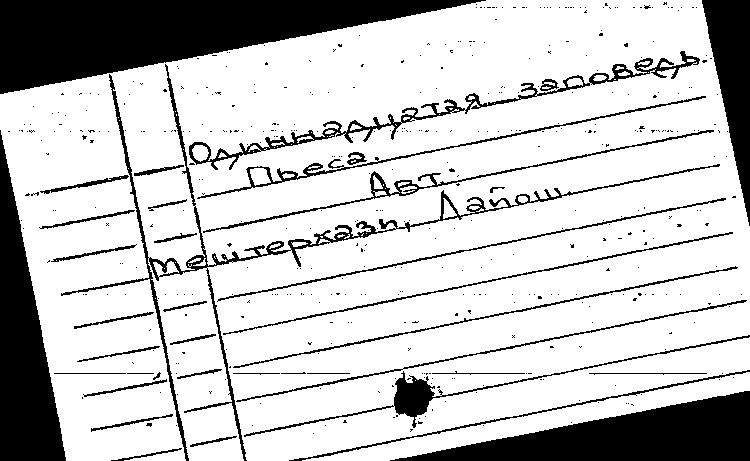 Одиннадцатая заповедь.
Пьеса.
Авт.:
Мештерхази, Лайош.